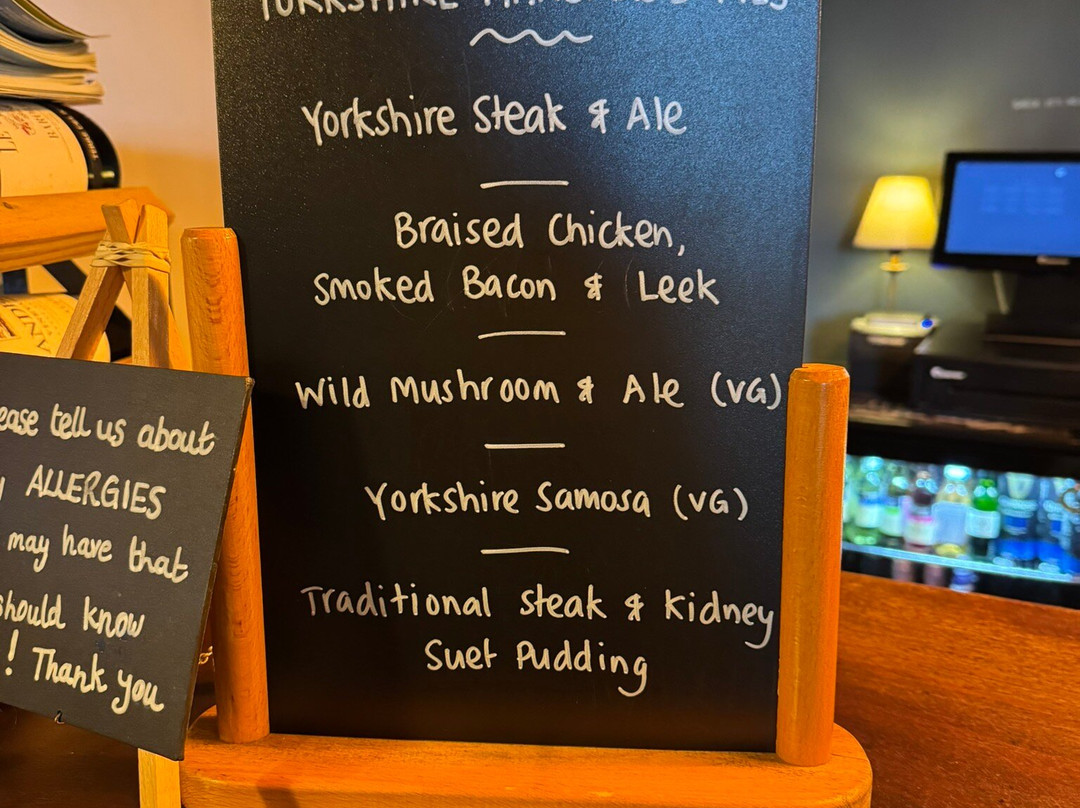 YORKSHIRE
Yorkshire Steak & Ale
Braised Chicken,
Smoked Bacon & Leek
Wild Mushroom & Ale (VG)
Yorkshire Samosa (VG)
Traditional Steak & Kidney
Suet Pudding
tell us about
ALLERGIES
may have that
should know
! Thank you